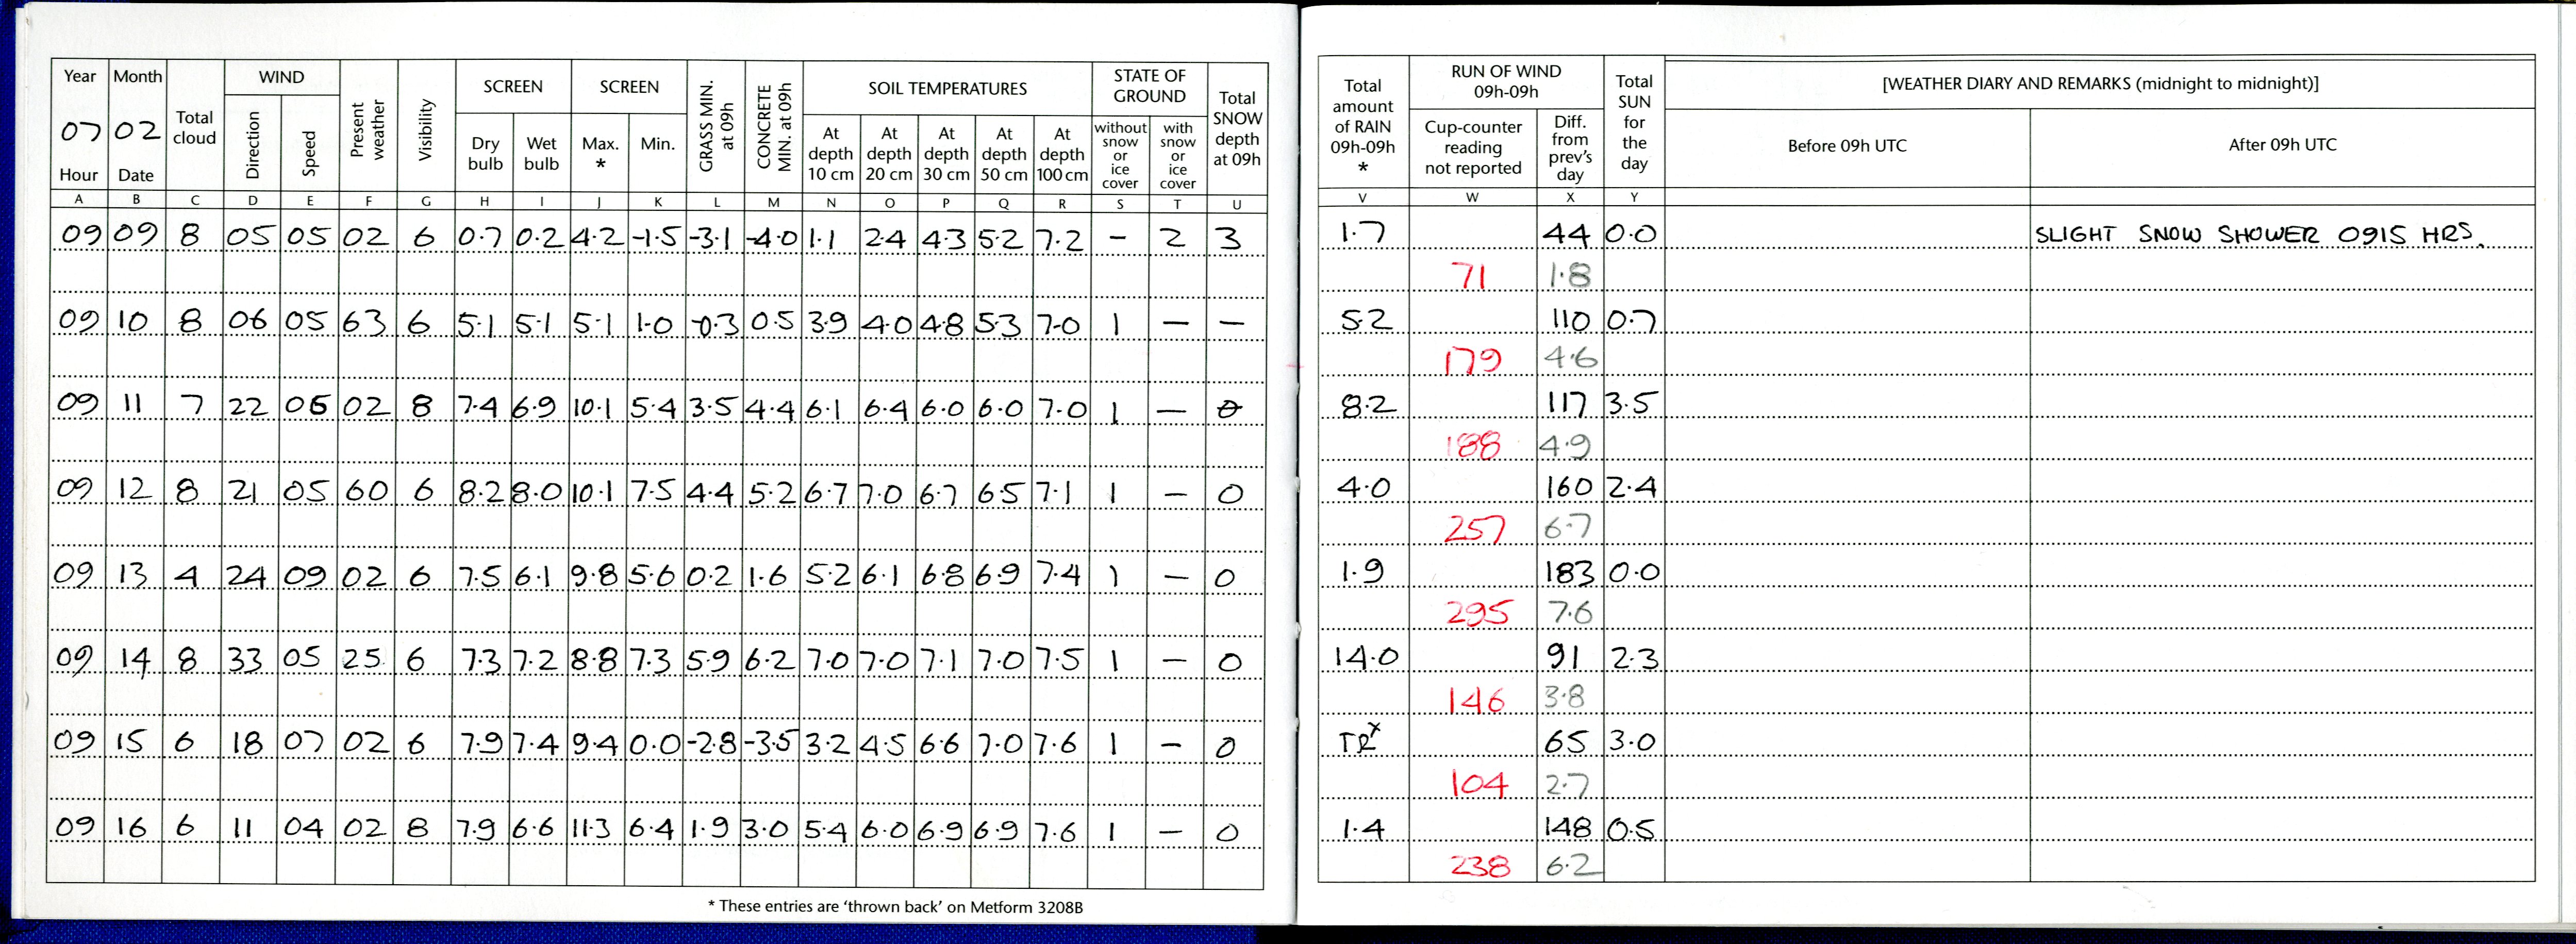 Year Month Total cloud WIND Present weather Visibility SCREEN SCREEN GRASS MIN. at 09h CONCRETE MIN. at 09h SOIL TEMPERATURES STATE OF GROUND Total SNOW depth at 09h
07 02 Direction Speed Dry bulb Wet bulb Max. * Min. At depth 10 cm At depth 20 cm At depth 30 cm At depth 50 cm At depth 100 cm without snow or ice cover with snow or ice cover
Hour Date
A B C D E F G H I J K L M N O P Q R S T U
09 09 8 05 05 02 6 0.7 0.2 4.2 -1.5 -3.1 -4.0 1.1 2.4 4.3 5.2 7.2 - 2 3
09 10 8 06 05 63 6 5.1 5.1 5.1 1.0 -0.3 0.5 3.9 4.0 4.8 5.3 7.0 1 - -
09 11 7 22 06 02 8 7.4 6.9 10.1 5.4 3.5 4.4 6.1 6.4 6.0 6.0 7.0 1 - 0
09 12 8 21 05 60 6 8.2 8.0 10.1 7.5 4.4 5.2 6.7 7.0 6.7 6.5 7.1 1 - 0
09 13 4 24 09 02 6 7.5 6.1 9.8 5.6 0.2 1.6 5.2 6.1 6.8 6.9 7.4 1 - 0
09 14 8 33 05 25 6 7.3 7.2 8.8 7.3 5.9 6.2 7.0 7.0 7.1 7.0 7.5 1 - 0
09 15 6 18 07 02 6 7.9 7.4 9.4 0.0 -2.8 -3.5 3.2 4.5 6.6 7.0 7.6 1 - 0
09 16 6 11 04 02 8 7.9 6.6 11.3 6.4 1.9 3.0 5.4 6.0 6.9 6.9 7.6 1 - 0
* These entries are 'thrown back' on Metform 3208B
Total amount of RAIN 09h-09h * RUN OF WIND 09h-09h Total SUN for the day [WEATHER DIARY AND REMARKS (midnight to midnight)]
Cup-counter reading not reported Diff. from prev's day Before 09h UTC After 09h UTC
V W X Y
1.7 44 0.0 SLIGHT SNOW SHOWER 0915 HRS.
71 1.8
5.2 110 0.7
179 4.6
8.2 117 3.5
188 4.9
4.0 160 2.4
257 6.7
1.9 183 0.0
295 7.6
14.0 91 2.3
146 3.8
TR x 65 3.0
104 2.7
1.4 148 0.5
238 6.2